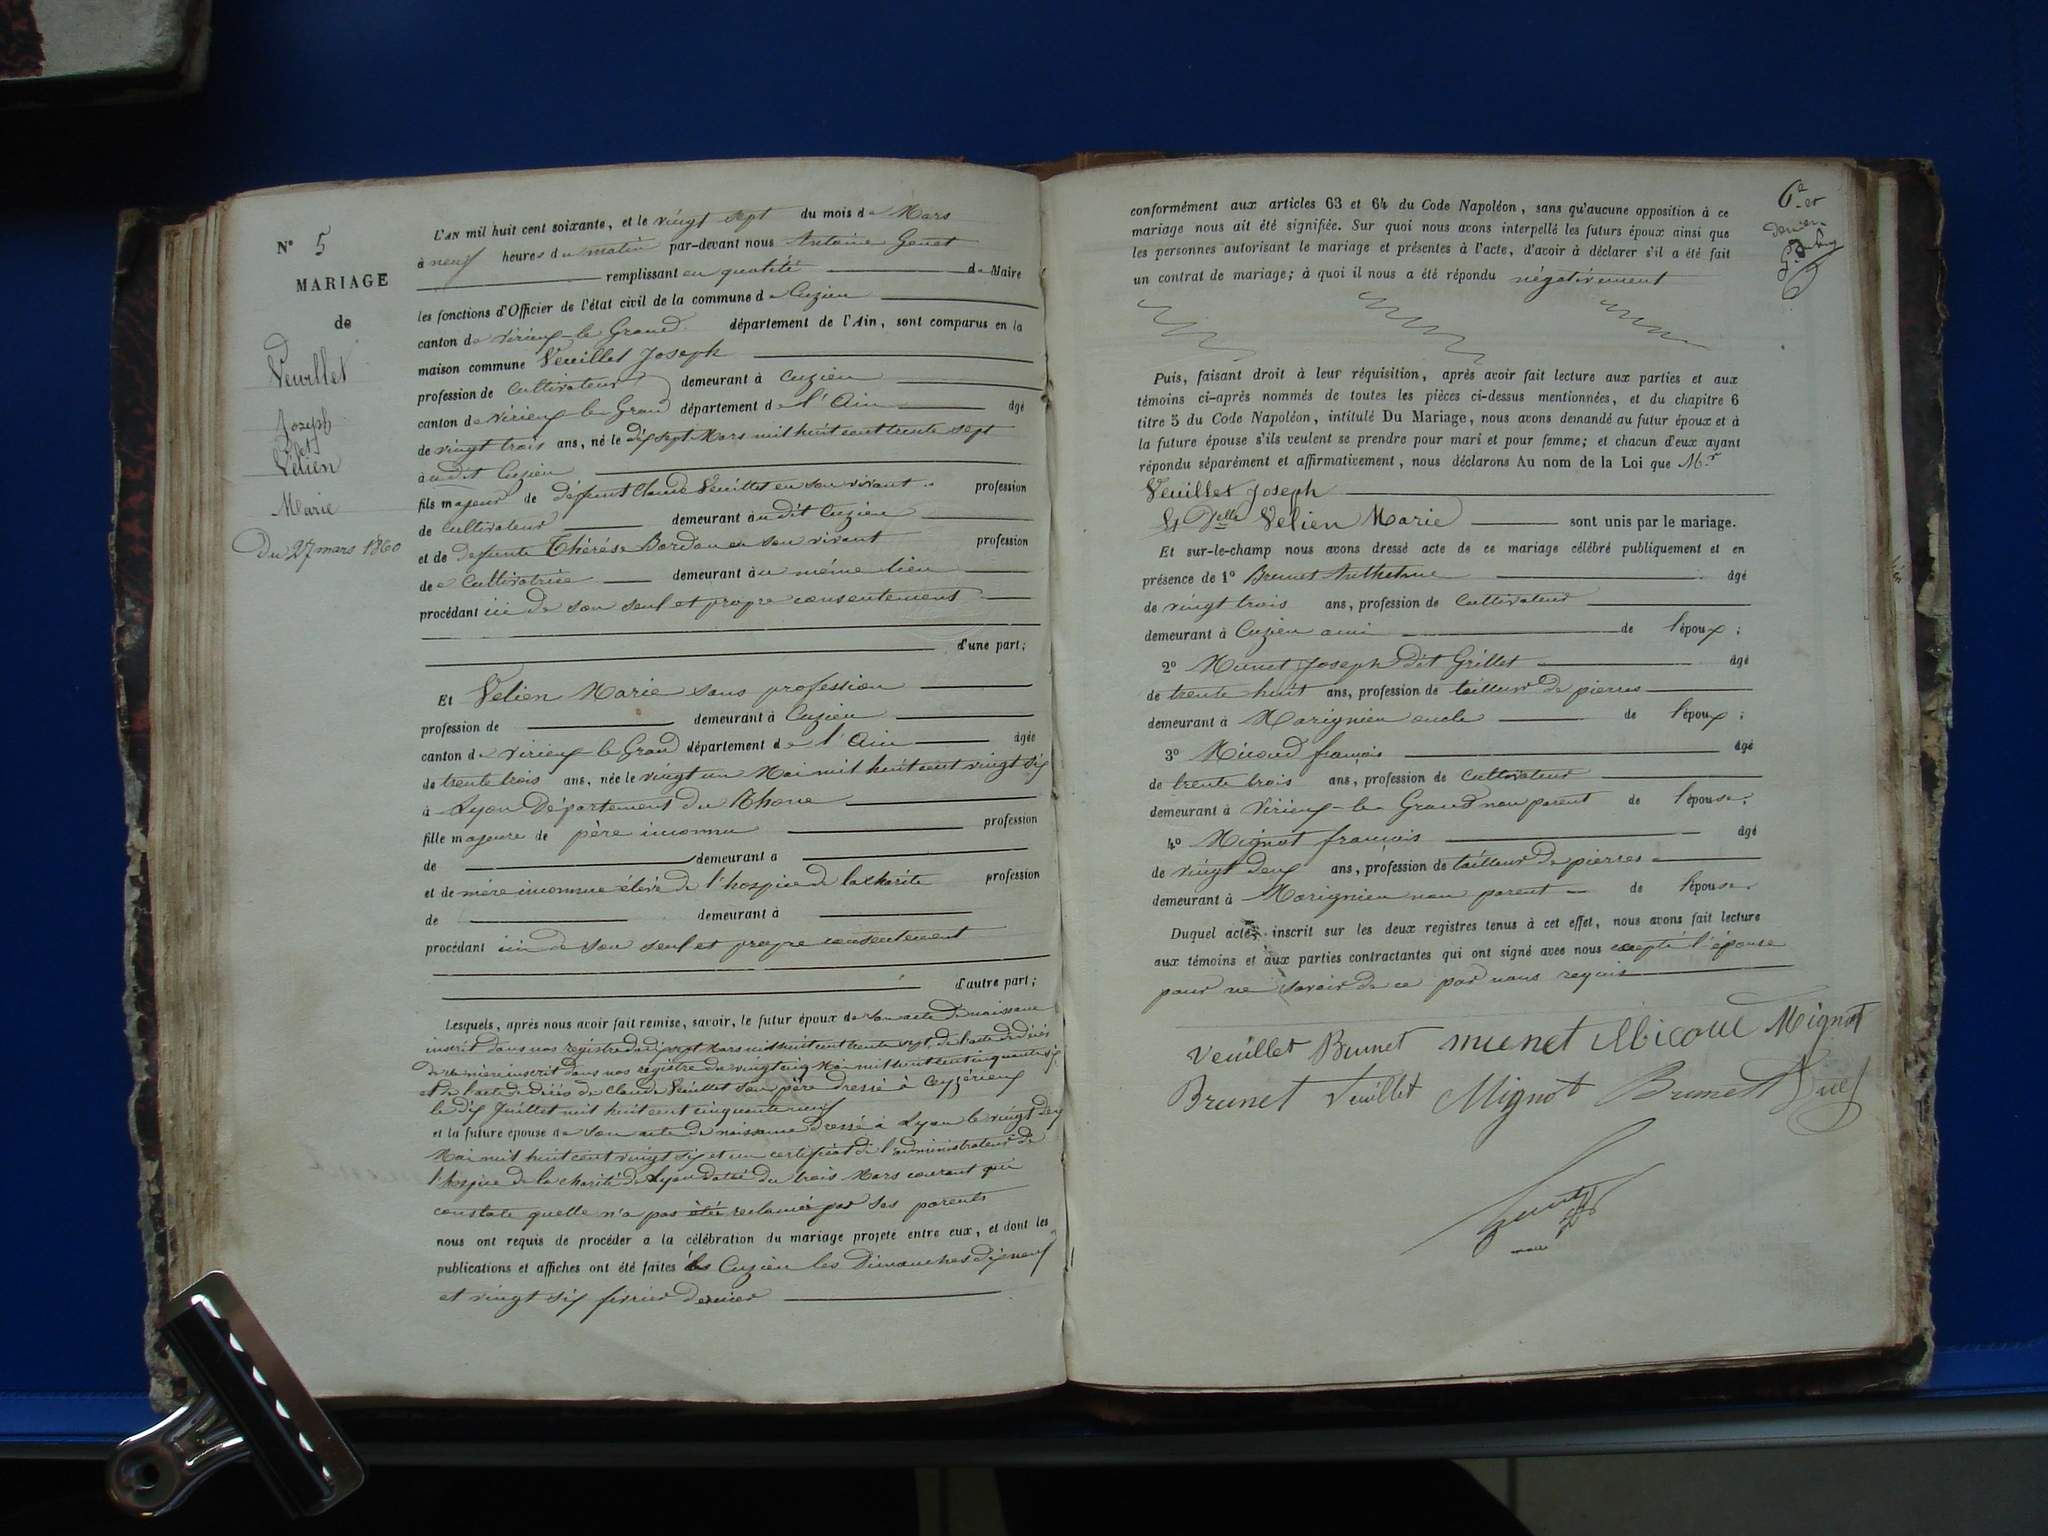 N° 5
MARIAGE
de
Veuillet
Joseph
et
Velien
Marie
Du 27 mars 1860
L'AN mil huit cent soixante, et le vingt sept du mois de Mars
à neuf heures du matin par-devant nous Antoine Genet
remplissant en qualité de Maire
les fonctions d'Officier de l'état civil de la commune de Cuzieu
canton de Virieux-le-Grand département de l'Ain, sont comparus en la
maison commune Veuillet Joseph
profession de Cultivateur demeurant à Cuzieu
canton de Virieux-le-Grand département de l'Ain âgé
de vingt trois ans, né le dix sept Mars mil huit cent trente sept
à udit Cuzieu
fils majeur de défunt Claude Veuillet en son vivant profession
de Cultivateur demeurant àudit Cuzieu
et de defunte Thérèse Bardon en son vivant profession
de Cultivatrice demeurant àu même lieu
procédant ici de son seul et propre consentement
d'une part;
Et Velien Marie sans profession
profession de demeurant à Cuzieu
canton de Virieux-le-Grand département de l'Ain âgée
de trente trois ans, née le vingt un Mai mil huit cent vingt six
à Lyon Département du Rhone
fille majeure de père inconnu profession
de demeurant à
et de mère inconnue élève de l'hospice de la charité profession
de demeurant à
procédant ici de son seul et propre consentement
d'autre part;
Lesquels, après nous avoir fait remise, savoir, le futur époux de son acte de naissance
inscrit dans nos registre du dix sept Mars mil huit cent trente sept, de l'acte de décés
de sa mère inscrit dans nos registre du vingt cinq Mai mil huit cent cinquante six
et de l'acte de décés de Claude Veuillet son père dressé à Ceyzérieux
le dix Juillet mil huit cent cinquante neuf
et la future épouse de son acte de naissance dressé à Lyon le vingt deux
Mai mil huit cent vingt six et un certificat de l'administrateur de
l'hospice de la charité de Lyon datée du trois Mars courant qui
constate quelle n'a pas étée reclamée par ses parents
nous ont requis de procéder à la célébration du mariage projeté entre eux, et dont les
publications et affiches ont été faites à Cuzieu les Dimanches dix neuf
et vingt six février dernier
6e et
dernier
conformément aux articles 63 et 64 du Code Napoléon, sans qu'aucune opposition à ce
mariage nous ait été signifiée. Sur quoi nous avons interpellé les futurs époux ainsi que
les personnes autorisant le mariage et présentes à l'acte, d'avoir à déclarer s'il a été fait
un contrat de mariage; à quoi il nous a été répondu négativement
Puis, faisant droit à leur réquisition, après avoir fait lecture aux parties et aux
témoins ci-après nommés de toutes les pièces ci-dessus mentionnées, et du chapitre 6
titre 5 du Code Napoléon, intitulé Du Mariage, nous avons demandé au futur époux et à
la future épouse s'ils veulent se prendre pour mari et pour femme; et chacun d'eux ayant
répondu séparément et affirmativement, nous déclarons Au nom de la Loi que Mr
Veuillet Joseph
Et Delle Velien Marie sont unis par le mariage.
Et sur-le-champ nous avons dressé acte de ce mariage célébré publiquement et en
présence de 1° Brunet Anthelme âgé
de vingt trois ans, profession de Cultivateur
demeurant à Cuzieu ami de l'époux;
2° Munet Joseph dit Grillet âgé
de trente huit ans, profession de tailleur de pierres
demeurant à Marignieu oncle de l'époux;
3° Micoud français âgé
de trente trois ans, profession de Cultivateur
demeurant à Virieux-le-Grand non parent de l'épouse.
4° Mignot français âgé
de vingt deux ans, profession de tailleur de pierres
demeurant à Marignieu non parent de l'épouse.
Duquel acte, inscrit sur les deux registres tenus à cet effet, nous avons fait lecture
aux témoins et aux parties contractantes qui ont signé avec nous excepté l'épouse
pour ne savoir de ce par nous requis
Veuillet Brunet munet Micoud Mignot
Brunet Veuillet Mignot Brunet